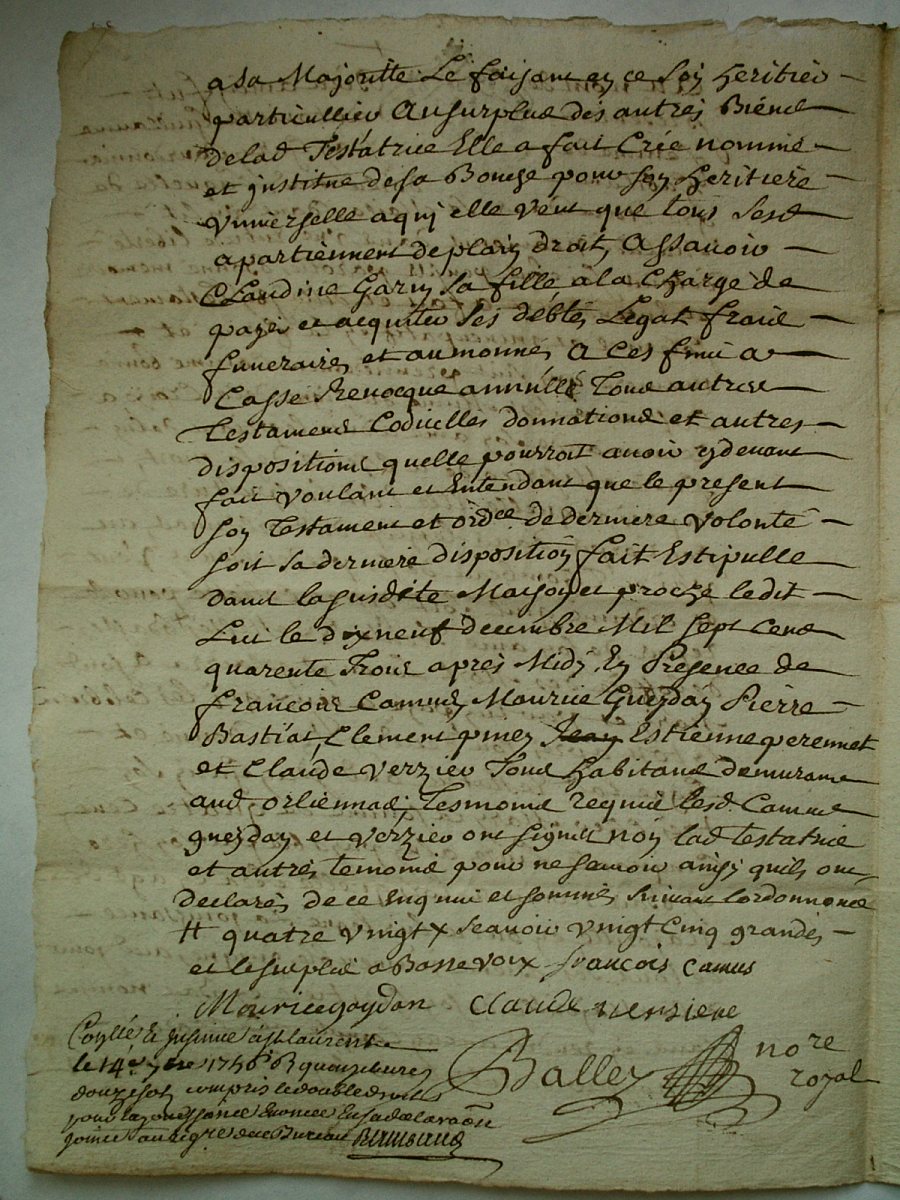 a sa Majoritte Le faisant en ce son heritier
particullier Au surplus des autres Biens
de lad Testatrice Elle a fait Crée nommé
et institue de sa Bouche pour son Heritiere
universelle a qui elle veut que tous sesd
apartiennent de plain droit, Assavoir
Claudine Garin sa fille a la Charge de
payer et acquitter ses debtes Legat frais
funeraires et aumonnes A ces fins a
Casse Revocque annullé Tous autres
Testamens Codicelles donnations et autres
dispositions quelle pourroit avoir cy devant
fait voulant et Entendant que le present
son Testament et ordce de derniere volonté
soit sa derniere disposition fait Estipullé
dans la susdite Maison et proche ledit
Lit le dix neuf decembre Mil sept cens
quarente Trois apres Midy En Presence de
francois Camus, Maurice Gueydan Pierre
Bastiat, Clement piney Jean Estienne perennet
et Claude verzieu Tous habitans de
aud orliennas, Tesmoins requis lesd Camus
gueydan et verzieu ont signés non lad testatrice
et autres temoins pour ne scavoir ainsy quils ont
declarés de ce Enquis et sommés suivant lordonnance
++ quatre vingt x scavoir vingt cinq grandes
et le surplus a Basse voix francois camus
Maurice gaydan claude versieue
Balley nore
royal
Coņllé & a st laurent
le 14e 7bre 1746
douze sols compris le double